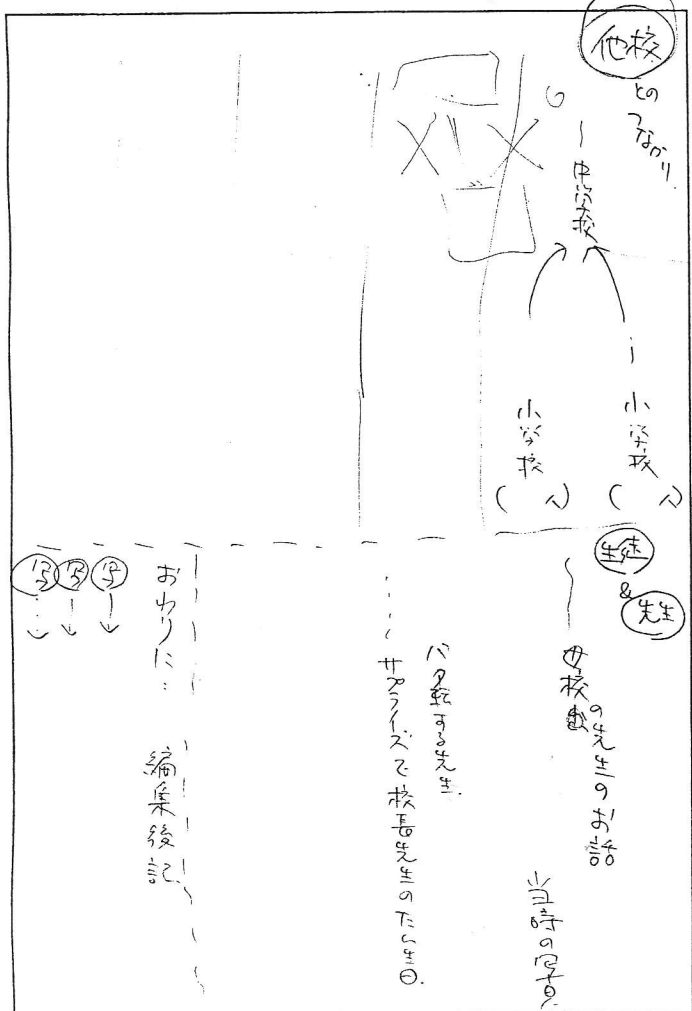 他校
とのつながり
〜中学校
小学校
( 人)
小学校
( 人)
生徒
&
先生
母校の先生のお話
当時の写真
バク転する先生.
サプライズで校長先生のたん生日.
おわりに…
編集後記
写
写
写